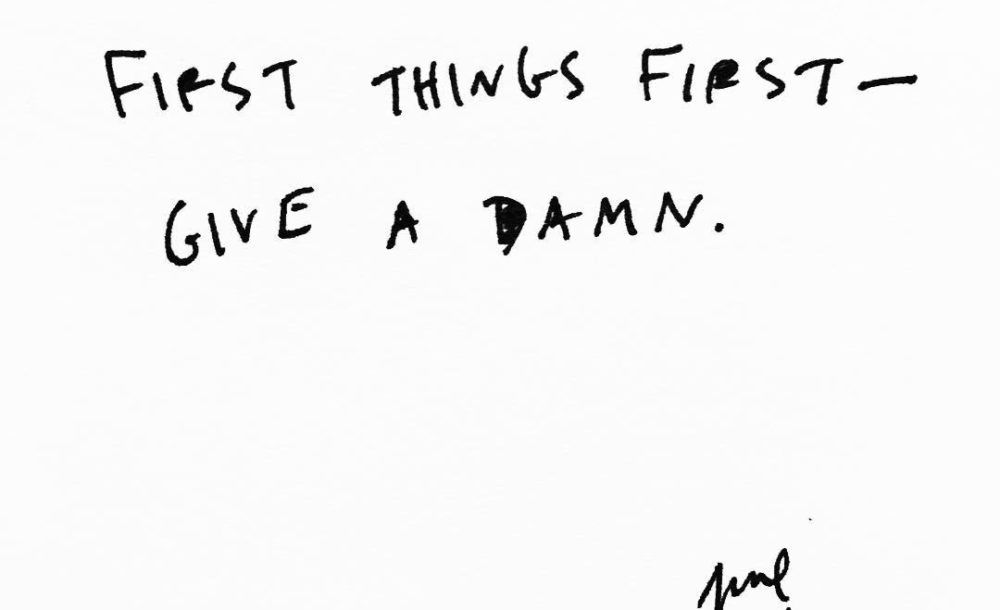 FIRST THINGS FIRST—
GIVE A DAMN.